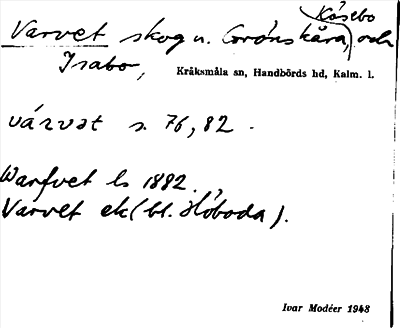 Kåsebo
Varvet skog u. Grönskåra, och
Isabo, Kråksmåla sn, Handbörds hd, Kalm. l.
várvət s. 76, 82.
Warfvet ls 1882.
Varvet ek (bl. Höboda).
Ivar Modéer 1948